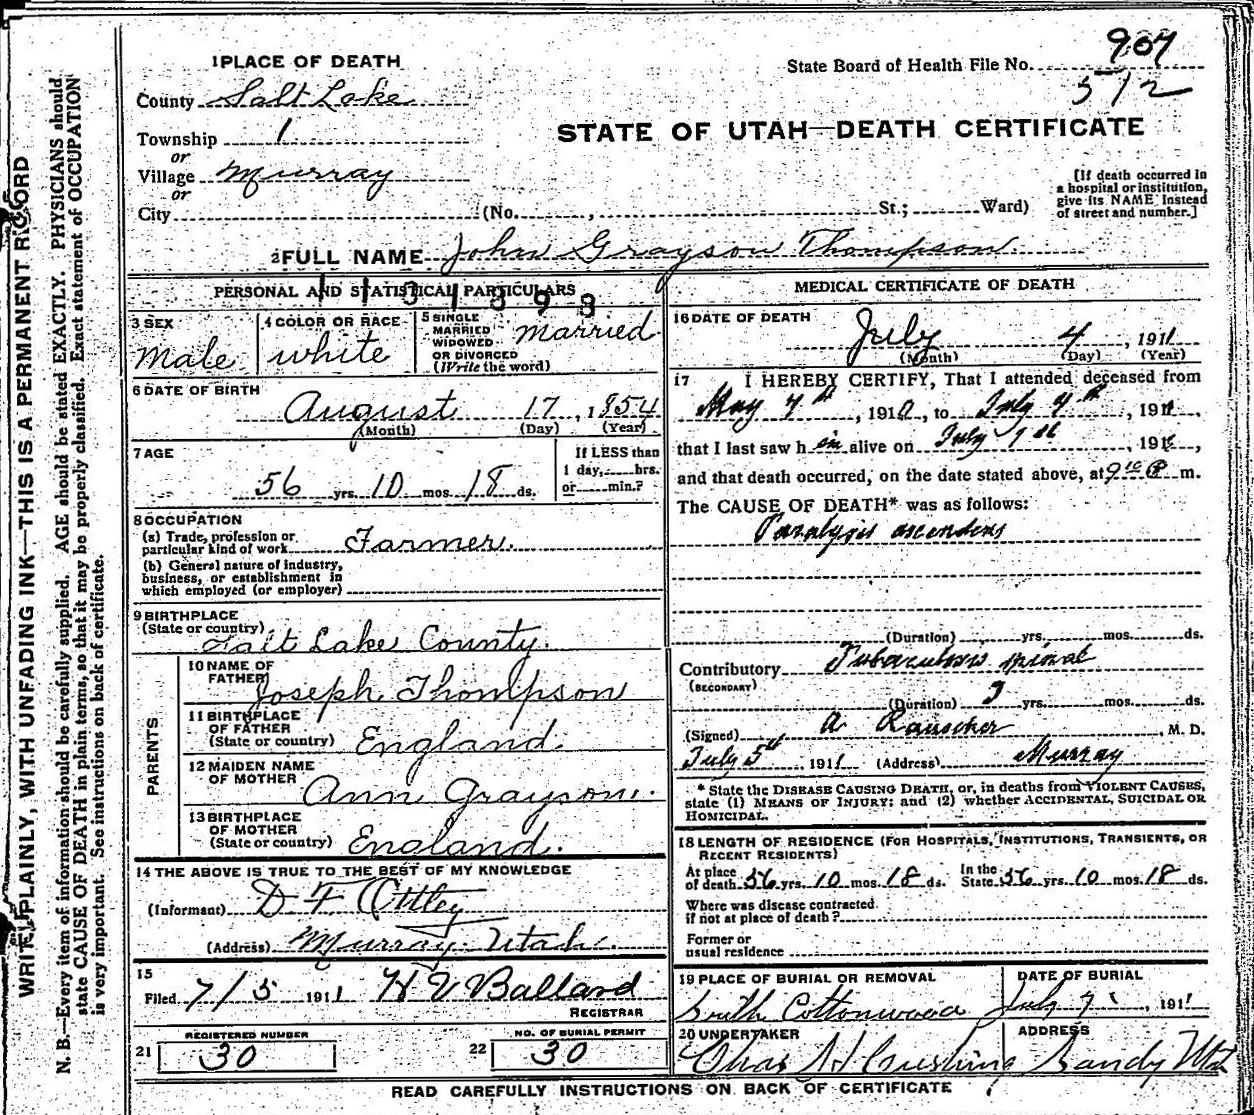 WRITE PLAINLY, WITH UNFADING INK—THIS IS A PERMANENT RECORD
N. B.—Every item of information should be carefully supplied. AGE should be stated EXACTLY. PHYSICIANS should
state CAUSE OF DEATH in plain terms, so that it may be properly classified. Exact statement of OCCUPATION
is very important. See instructions on back of certificate.
1 PLACE OF DEATH
State Board of Health File No. 907
512
County Salt Lake
STATE OF UTAH—DEATH CERTIFICATE
Township 1
or
Village Murray
or
City (No. , St.; Ward)
[If death occurred in
a hospital or institution,
give its NAME instead
of street and number.]
2 FULL NAME John Grayson Thompson
PERSONAL AND STATISTICAL PARTICULARS
3 SEX
Male
4 COLOR OR RACE
white
5 SINGLE
MARRIED
WIDOWED
OR DIVORCED
(Write the word)
married
6 DATE OF BIRTH
August 17, 1854
(Month) (Day) (Year)
7 AGE
56 yrs. 10 mos. 18 ds.
If LESS than
1 day, hrs.
or min.?
8 OCCUPATION
(a) Trade, profession or
particular kind of work Farmer.
(b) General nature of industry,
business, or establishment in
which employed (or employer)
9 BIRTHPLACE
(State or country)
Salt Lake County.
PARENTS
10 NAME OF
FATHER
Joseph Thompson
11 BIRTHPLACE
OF FATHER
(State or country)
England.
12 MAIDEN NAME
OF MOTHER
Ann Grayson.
13 BIRTHPLACE
OF MOTHER
(State or country)
England.
14 THE ABOVE IS TRUE TO THE BEST OF MY KNOWLEDGE
(Informant) D F Ottley
(Address) Murray Utah.
15
Filed 7/5 1911 H V Ballard
REGISTRAR
REGISTERED NUMBER
21 30
NO. OF BURIAL PERMIT
22 30
MEDICAL CERTIFICATE OF DEATH
16 DATE OF DEATH
July 4, 1911
(Month) (Day) (Year)
17 I HEREBY CERTIFY, That I attended deceased from
May 7th, 1910, to July 4th, 1911,
that I last saw him alive on July , 191 ,
and that death occurred, on the date stated above, at 9 10 P m.
The CAUSE OF DEATH* was as follows:
Paralysis ascendens
(Duration) yrs. mos. ds.
Contributory Tuberculosis spinal
(SECONDARY)
(Duration) yrs. mos. ds.
(Signed) A Rauscher, M. D.
July 5th, 1911 (Address) Murray
* State the DISEASE CAUSING DEATH, or, in deaths from VIOLENT CAUSES,
state (1) MEANS OF INJURY; and (2) whether ACCIDENTAL, SUICIDAL OR
HOMICIDAL.
18 LENGTH OF RESIDENCE (FOR HOSPITALS, INSTITUTIONS, TRANSIENTS, OR
RECENT RESIDENTS)
At place
of death 56 yrs. 10 mos. 18 ds.
In the
State 56 yrs. 10 mos. 18 ds.
Where was disease contracted
if not at place of death?
Former or
usual residence
19 PLACE OF BURIAL OR REMOVAL
South Cottonwood
DATE OF BURIAL
July 7, 1911
20 UNDERTAKER
Chas H Crushing
ADDRESS
Sandy Utah
READ CAREFULLY INSTRUCTIONS ON BACK OF CERTIFICATE